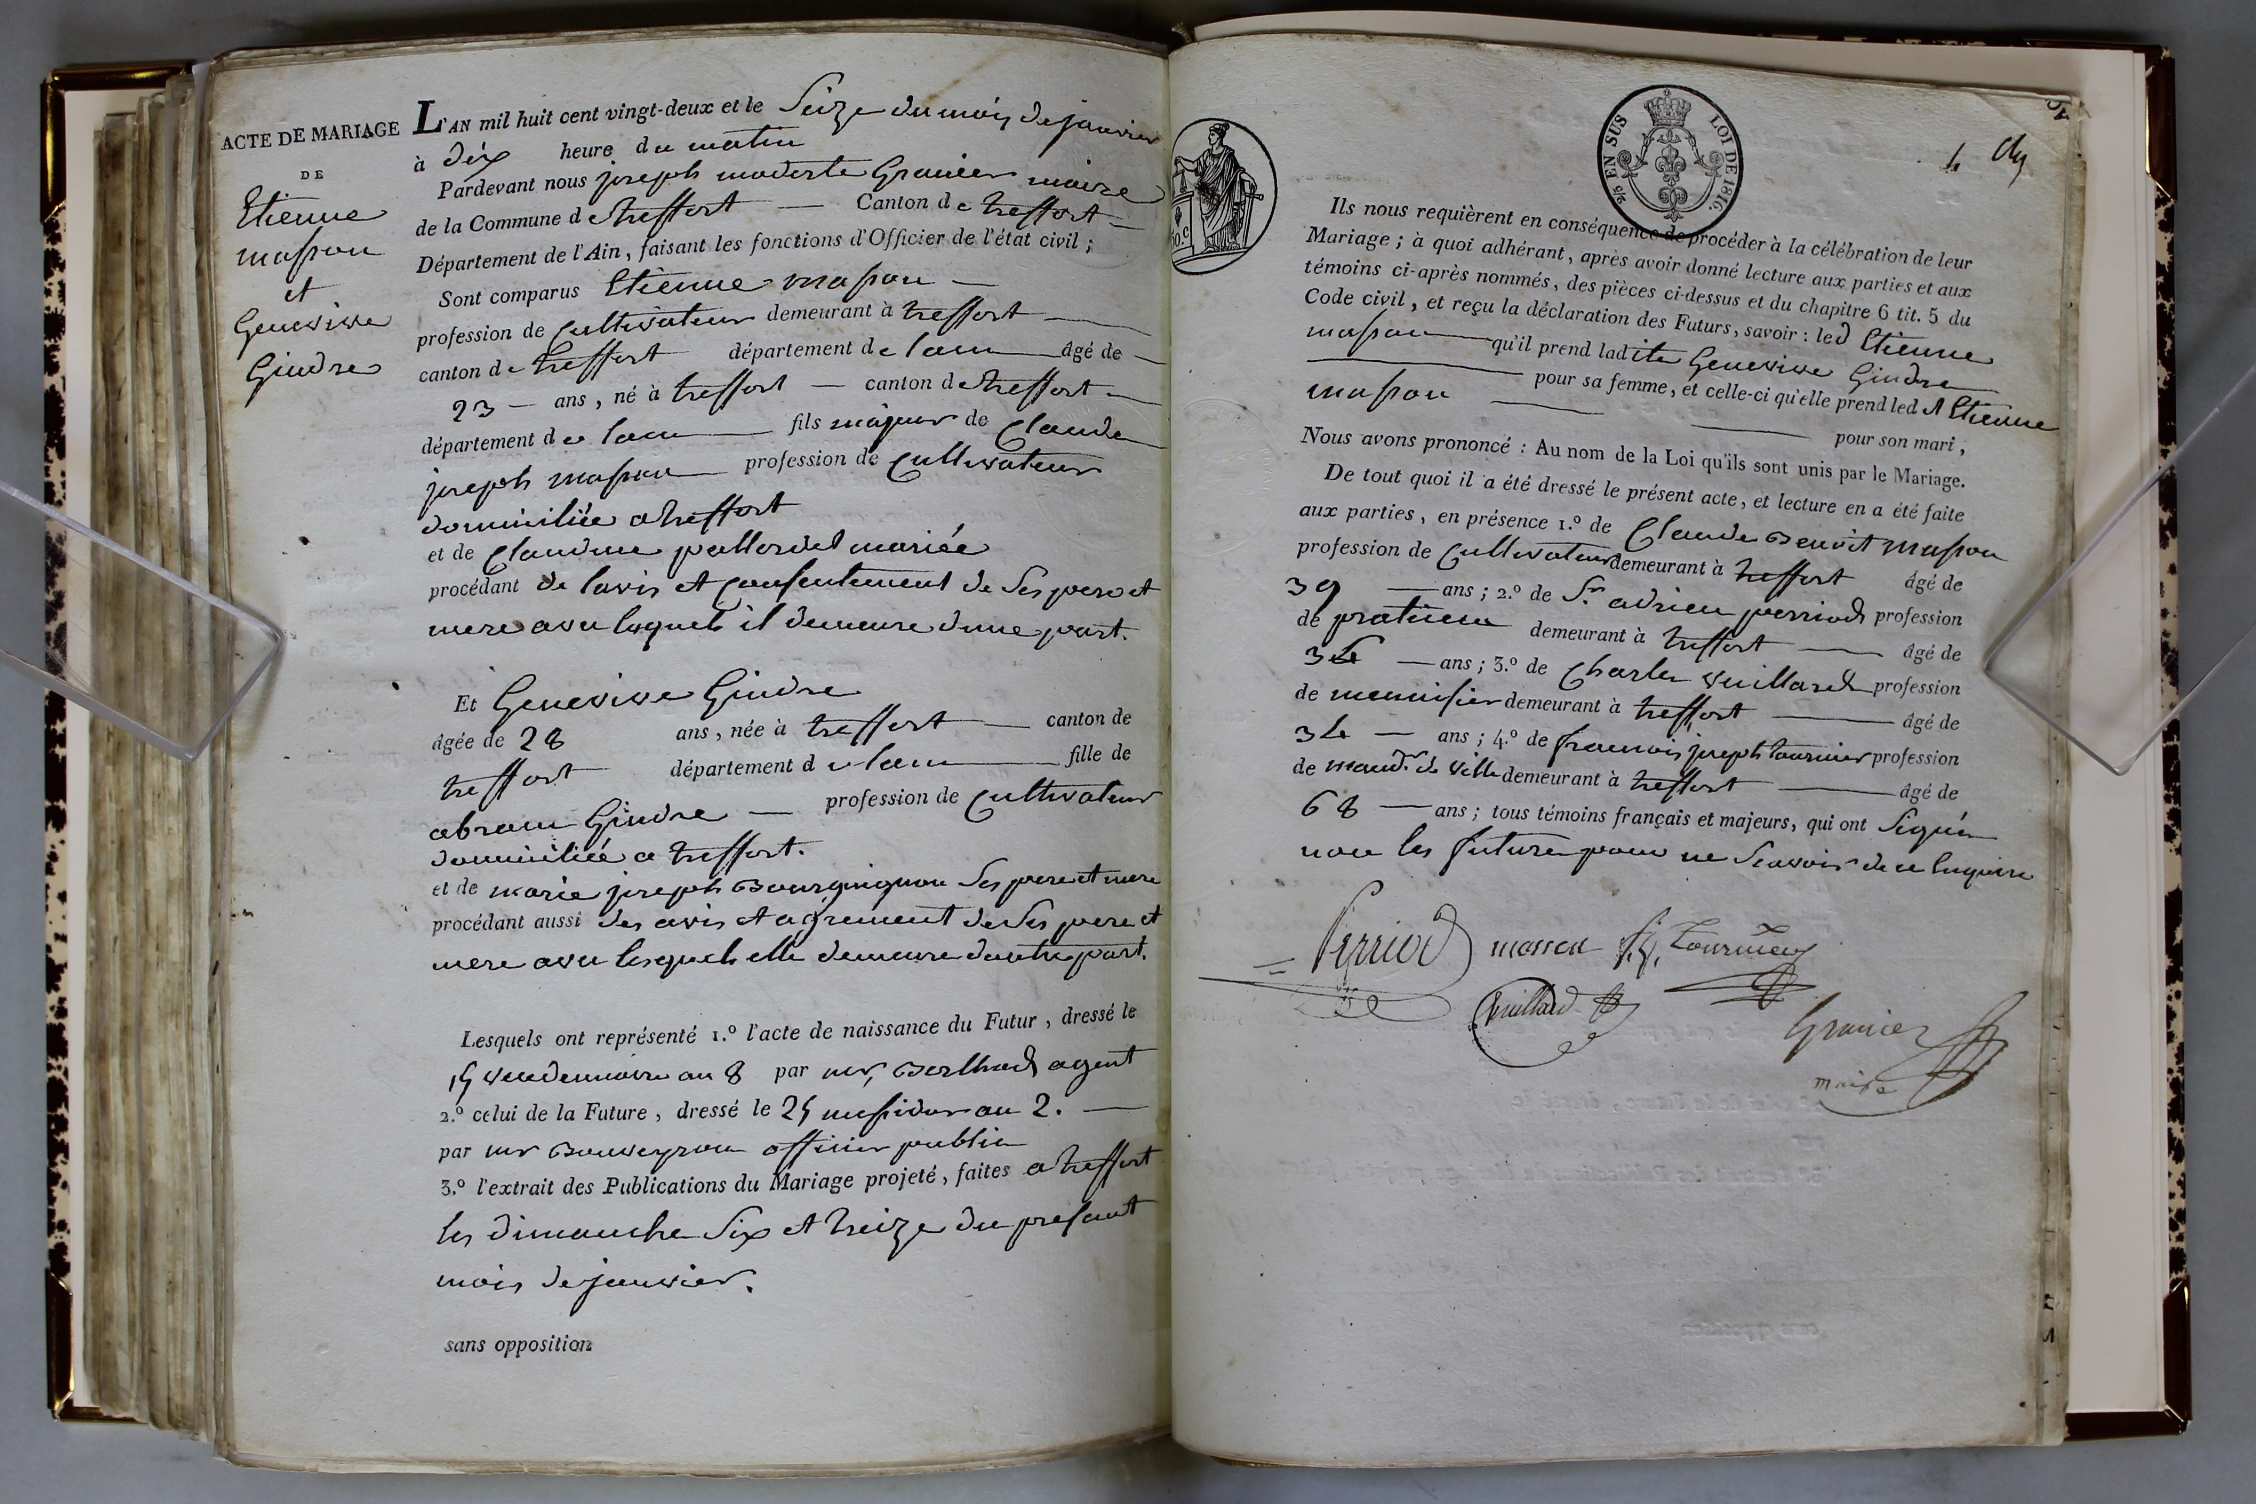 ACTE DE MARIAGE
DE
Etienne
masson
et
Genevieve
Gindre
L'AN mil huit cent vingt-deux et le Seize du mois de janvier
à dix heure du matin
Pardevant nous joseph modeste Granier maire
de la Commune de treffort — Canton de treffort —
Département de l'Ain, faisant les fonctions d'Officier de l'état civil ;
Sont comparus Etienne masson —
profession de Cultivateur demeurant à treffort —
canton de treffort département de lain — âgé de —
23 — ans, né à treffort — canton de treffort —
département de lain — fils majeur de Claude
joseph masson — profession de Cultivateur
domiciliée a treffort
et de Claudine mariée
procédant de lavis et Consentement de Ses pere et
mere avec lesquels il demeure dune part.
Et Genevieve Gindre
âgée de 28 ans, née à treffort — canton de
treffort département de lain — fille de
abram Gindre — profession de Cultivateur
domiciliée a treffort.
et de marie joseph Bourguignon Ses pere et mere
procédant aussi des avis et agrement de Ses pere et
mere avec lesquels elle demeure dautre part.
Lesquels ont représenté 1.º l'acte de naissance du Futur, dressé le
15 vendemiaire an 8 par mr, agent
2.º celui de la Future, dressé le 25 messidor an 2. —
par mr Bouveyron officier public
3.º l'extrait des Publications du Mariage projeté, faites a treffort
les dimanche Six et treize du presant
mois de janvier.
sans opposition
5/5 EN SUS LOI DE 1816.
Ils nous requièrent en conséquence de procéder à la célébration de leur
Mariage ; à quoi adhérant, après avoir donné lecture aux parties et aux
témoins ci-après nommés, des pièces ci-dessus et du chapitre 6 tit. 5 du
Code civil, et reçu la déclaration des Futurs, savoir : led Etienne
masson — qu'il prend ladite Genevieve Gindre
— pour sa femme, et celle-ci qu'elle prend led t Etienne
masson — — pour son mari,
Nous avons prononcé : Au nom de la Loi qu'ils sont unis par le Mariage.
De tout quoi il a été dressé le présent acte, et lecture en a été faite
aux parties, en présence 1.º de Claude Benoit masson
profession de Cultivateur demeurant à treffort âgé de
39 — ans ; 2.º de Sr. adrien perriod profession
de praticien demeurant à treffort — âgé de
34 — ans ; 3.º de Charles vuillard profession
de menuisier demeurant à treffort — âgé de
34 — ans ; 4.º de francois joseph tournier profession
de mand.r de ville demeurant à treffort — âgé de
68 — ans ; tous témoins français et majeurs, qui ont Signés
non les futures pour ne Scavoir de ce Enquire
Perriod masson f. j. Tournier
Vuillard
Granier
maire